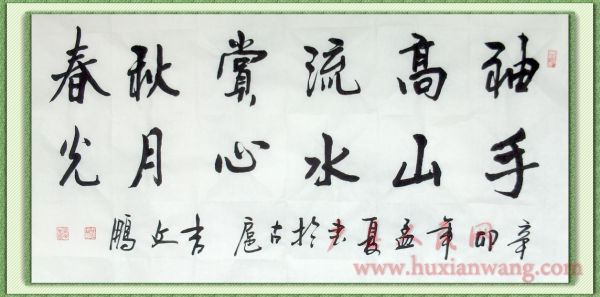 袖手
高山
流水
賞心
秋月
春光
辛卯年孟夏书於古扈 吉
www.huxianwang.com